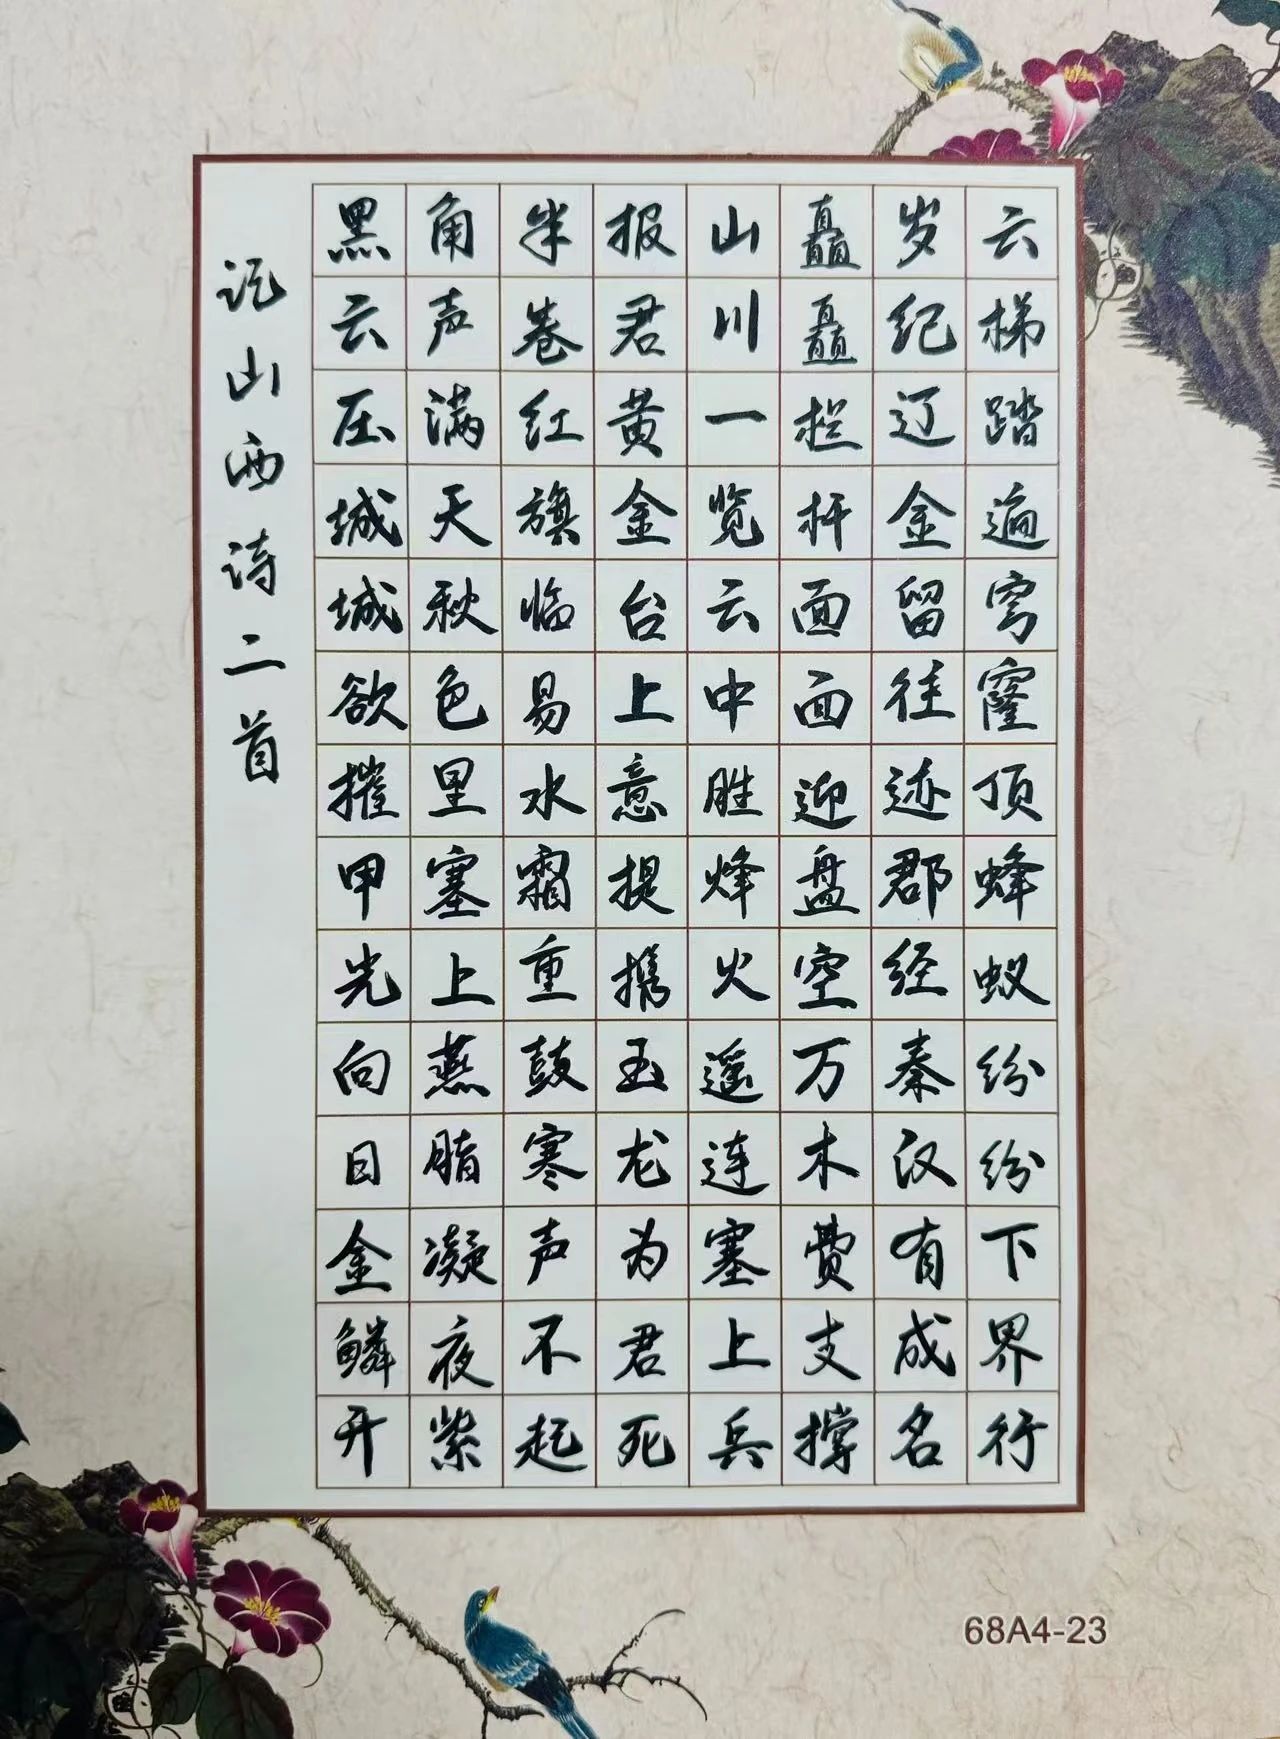 云梯踏遍穹窿顶蜂蚁纷纷下界行
岁纪辽金留往迹郡经秦汉有成名
矗矗栏杆面面迎盘空万木费支撑
山川一览云中胜烽火遥连塞上兵
报君黄金台上意提携玉龙为君死
半卷红旗临易水霜重鼓寒声不起
角声满天秋色里塞上燕脂凝夜紫
黑云压城城欲摧甲光向日金鳞开
记山西诗二首
68A4-23